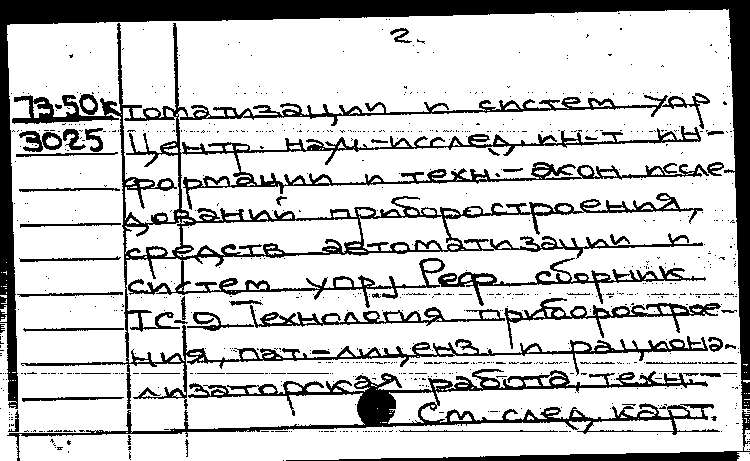 2.
73-50к томатизации и систем упр.
3025 Центр. науч.-исслед. ин-т ин-
формации и техн.-экон иссле-
дований приборостроения,
средств автоматизации и
систем упр.) Реф. сборник
ТС-9 Технология приборострое-
ния, пат.-лиценз. и рациона-
лизаторская работа, техн.-
См. след. карт.